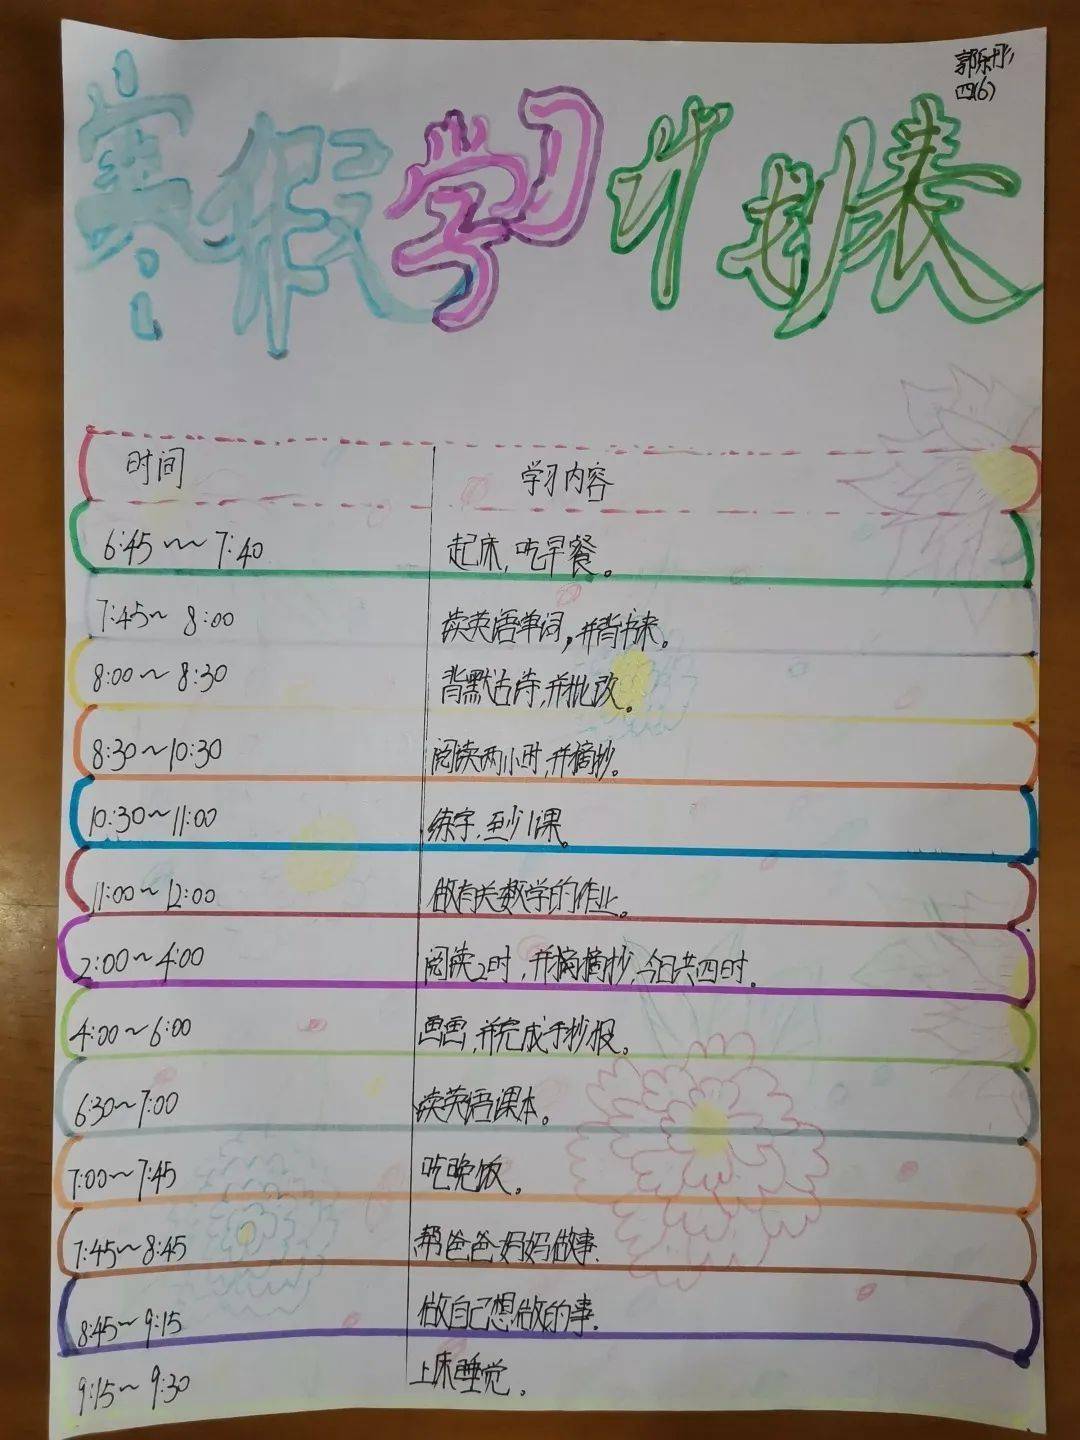 郭乐彤
四(6)
寒假学习计划表
时间 学习内容
6:45～7:40 起床,吃早餐。
7:45～8:00 读英语单词,并背书来。
8:00～8:30 背默古诗,并批改。
8:30～10:30 阅读两小时,并摘抄。
10:30～11:00 练字,至少1课。
11:00～12:00 做有关数学的作业。
2:00～4:00 阅读2时,并摘摘抄,今日共四时.
4:00～6:00 画画,并完成手抄报。
6:30～7:00 读英语课本。
7:00～7:45 吃晚饭。
7:45～8:45 帮爸爸妈妈做事.
8:45～9:15 做自己想做的事.
9:15～9:30 上床睡觉.